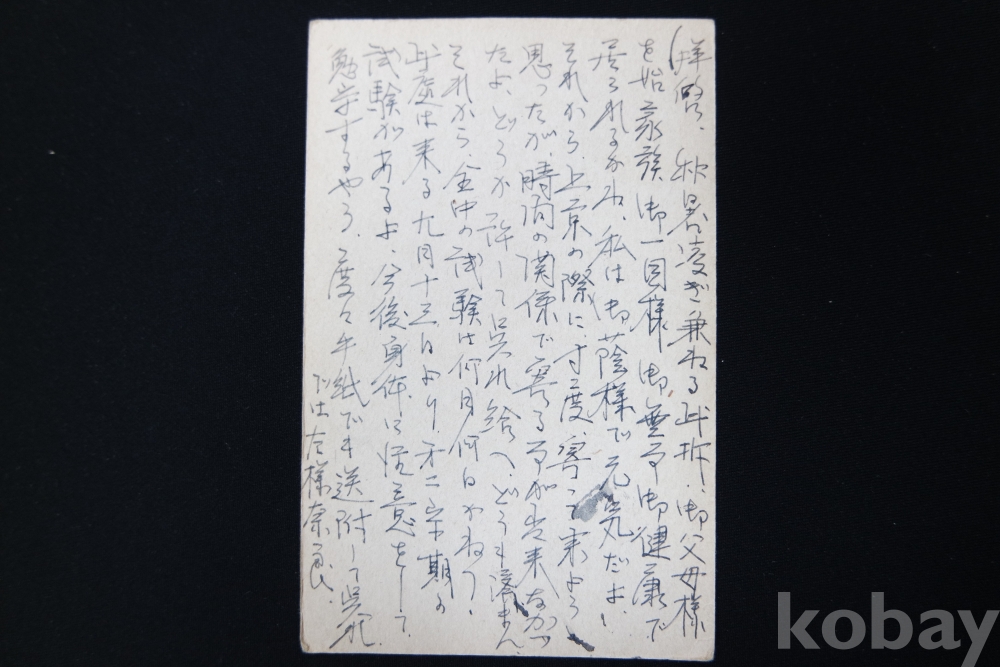 拝啓、秋暑凌ぎ兼ねる此折、御父母様
を始家族御一同様御無事御健康で
居られるかね、私は御蔭様で元気だよ、
それから上京の際に、寸度、寄って来よう
思ったが、時間の関係で寄る事が出来なかつ
たよ、どうか許して呉れ給へ、どうも済まん
それから、金中の試験は何月何日かね、
此度は来る九月十三日より、第二学期の
試験があるよ、今後身体に注意をして
勉学するやう、度々手紙でも送附して呉れ
では左様奈良、
kobay